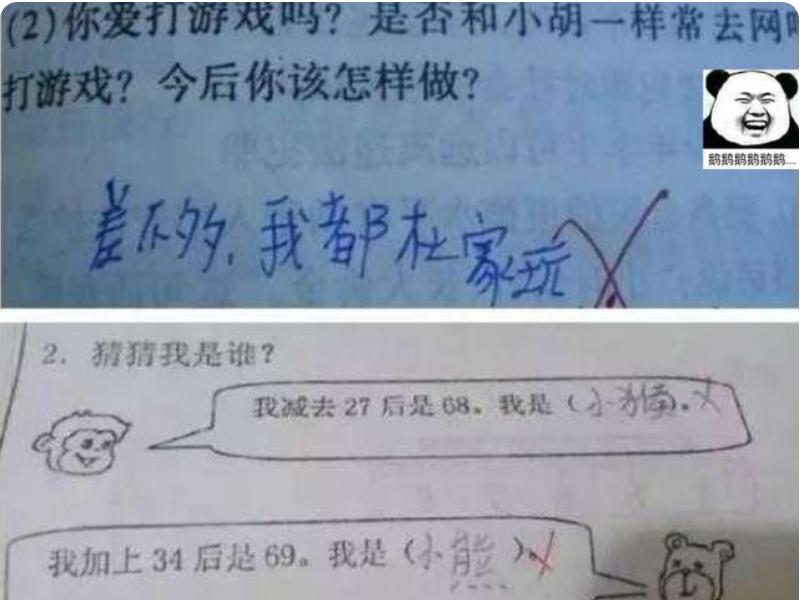 (2)你爱打游戏吗？是否和小胡一样常去网吧
打游戏？今后你该怎样做？
鹅鹅鹅鹅鹅鹅....
差不多，我都在家玩
2. 猜猜我是谁？
我减去27后是68。我是（小猴）。
我加上34后是69。我是（小熊）。